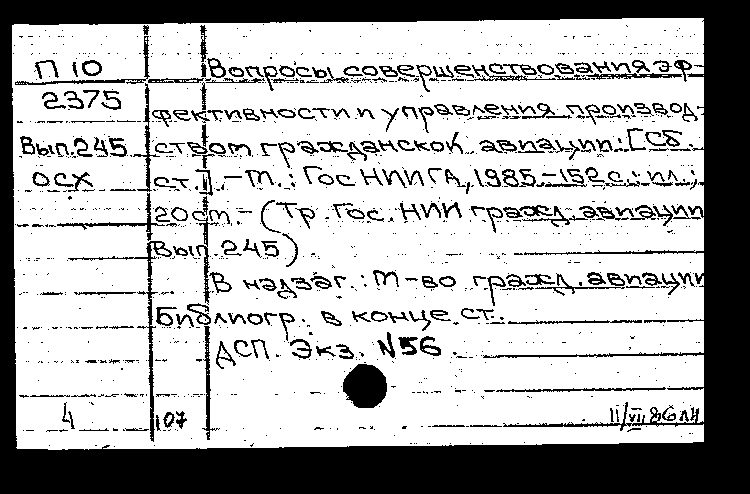 П 10 Вопросы совершенствования эф-
2375 фективности и управления производ-
Вып.245 ством гражданской авиации: [Сб.
ОСХ ст.]. - М.: Гос НИИ ГА, 1985. - 152 с.: ил.;
20 см. - (Тр. Гос. НИИ гражд. авиации
Вып. 245).
В надзаг.: М-во гражд. авиации
Библиогр. в конце ст.
ДСП. Экз. №56
4 107 11/VII 86